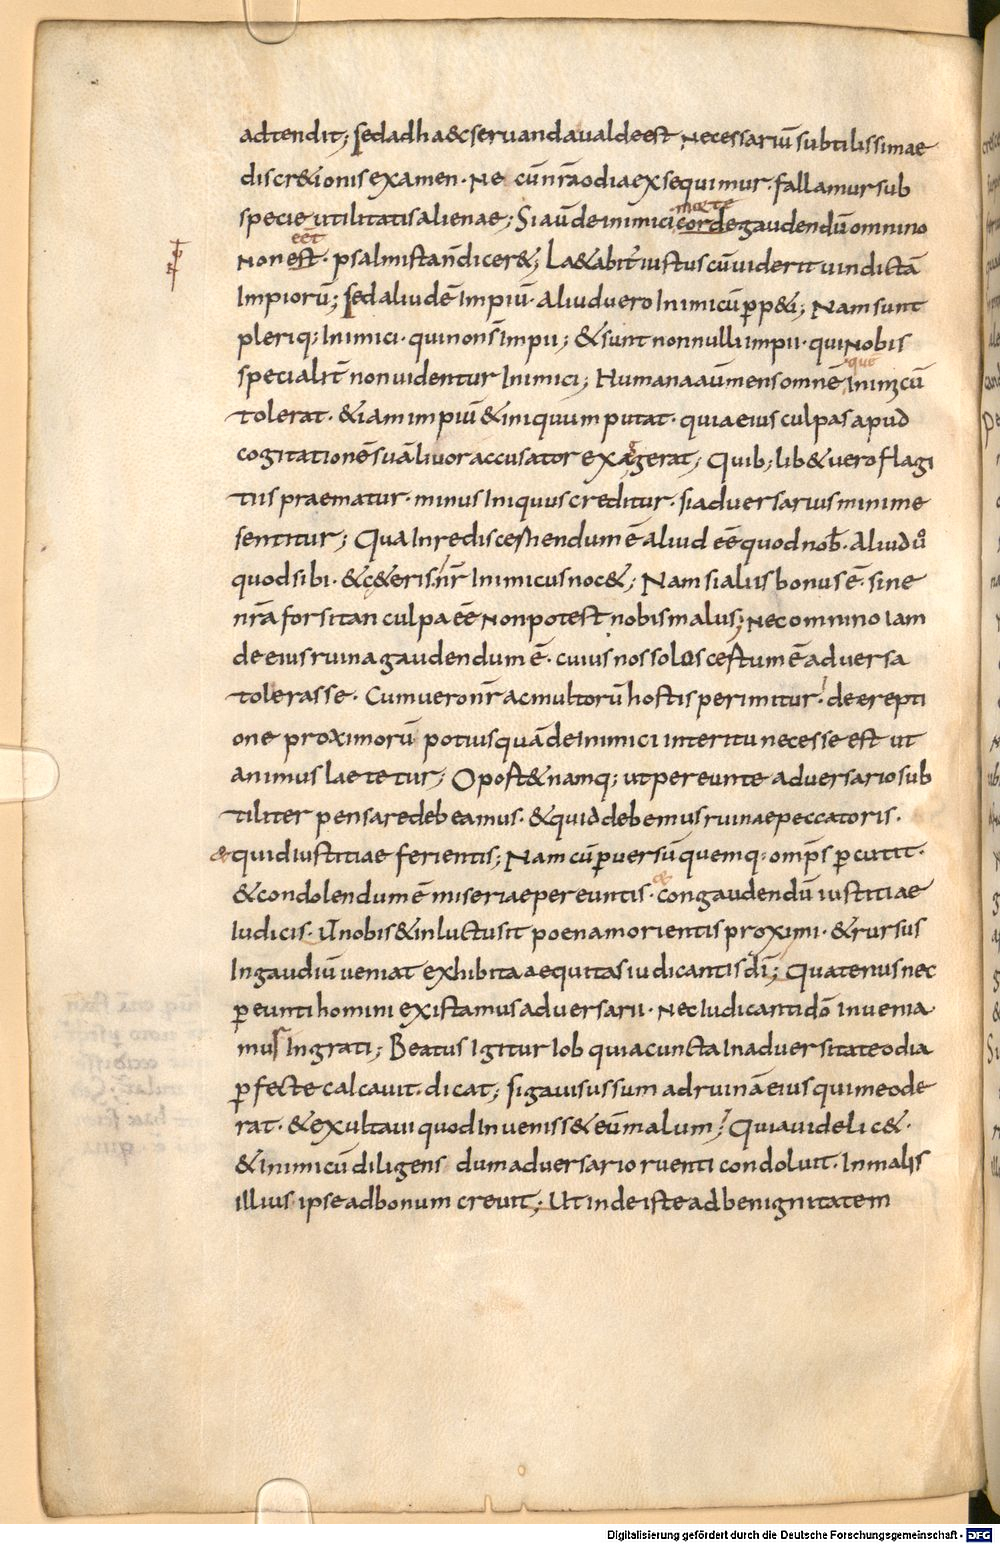 adtendit; sed ad h&ec seruanda ualde est necessariū subtilissimae
discr&ionis examen. Ne cū nr̄a odia exsequimur. fallamur sub
specie utilitatis alienae; Si aū de inimici corde gaudendū omnino
morte
non est. psalmista n̄ dicer&; La&abit̄ iustus cū uiderit uindictā
eēt
Impiorū; sed aliud ē Impiū. Aliud uero Inimicū ꝑp&i; Nam sunt
pleriq; Inimici. qui non s̄ Impii; & sunt nonnulli impii. qui nobis
specialit̄ non uidentur Inimici; Humana aū mens omnē Inimicū
quē
tolerat. & iam impiū & iniquum putat. quia eius culpas apud
cogitationē suā liuor accusator exagerat; Quib; lib& uero flagi
tiis praematur. minus Iniquus creditur. si aduersarius minime
sentitur; Qua In re discernendum ē aliud eē quod nob̄. Aliud uͦ
quod sibi. & c&eris nr̄ Inimicus noc&; Nam si aliis bonus ē. sine
nr̄a forsitan culpa eē non potest nobis malus; nec omnino Iam
de eius ruina gaudendum ē. cuius nos solos cestum ē aduersa
tolerasse. Cum uero nr̄ ac multorū hostis perimitur. de erepti
one proximorū potius quā de inimici interitu necesse est ut
animus laetetur; Opost& namq; ut pereunte aduersario sub
tiliter pensare debeamus. & quid debemus ruinae peccatoris.
& quid iustitiae ferientis; Nam cū ꝑuersū quemq; omp̄s ꝑcutit.
& condolendum ē miseriae pereuntis. & congaudendū iustitiae
Iudicis. ut nobis & in luctu sit poena morientis proximi. & rursus
In gaudiū ueniat exhibita aequitas iudicantis dī; Quatenus nec
ꝑeunti homini existamus aduersarii. nec Iudicanti dō inuenia
mus Ingrati; Beatus Igitur Iob quia cuncta In aduersitate odia
ꝑfecte calcauit. dicat; si gauisus sum ad ruinā eius qui me ode
rat. & exultaui quod Inueniss& eū malum; Quia uidelic&.
& Inimicū diligens dum aduersario ruenti condoluit. In malis
illius ipse ad bonum creuit; Ut inde iste ad benignitatem
Digitalisierung gefördert durch die Deutsche Forschungsgemeinschaft - DFG